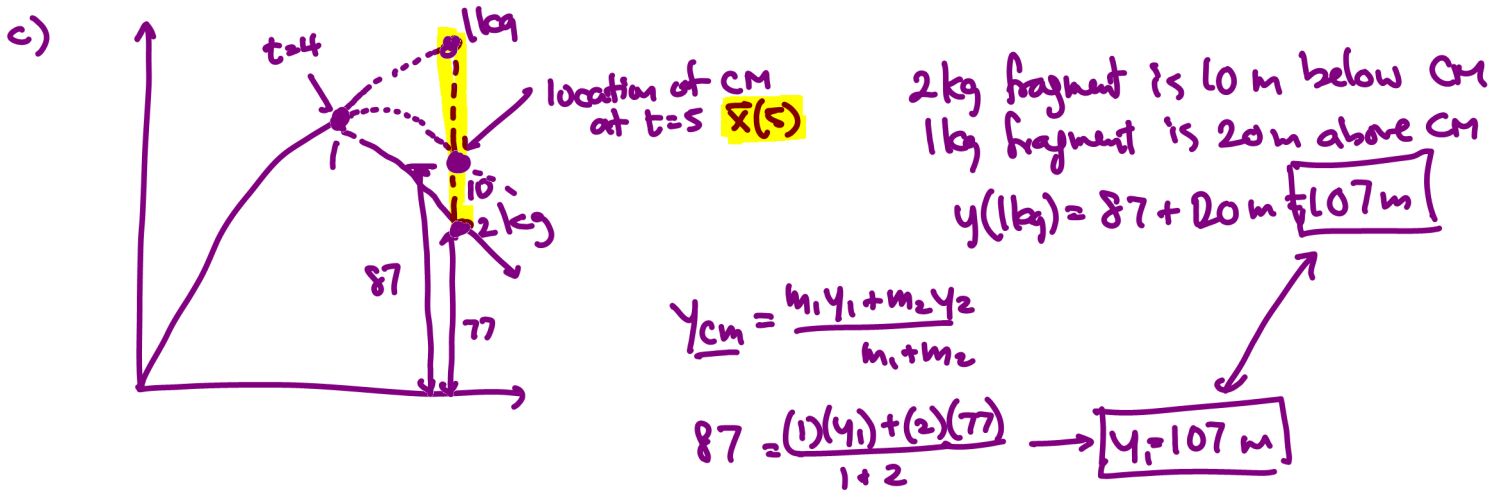 c)
t=4
1kg
location of CM
at t=5 x̄(5)
10
2kg
87
77
2kg fragment is 10 m below CM
1kg fragment is 20m above CM
y(1kg) = 87 + 20 m = 107 m
Ycm = m₁y₁+m₂y₂ / m₁+m₂
87 = (1)(y₁)+(2)(77) / 1+2 → y₁=107 m